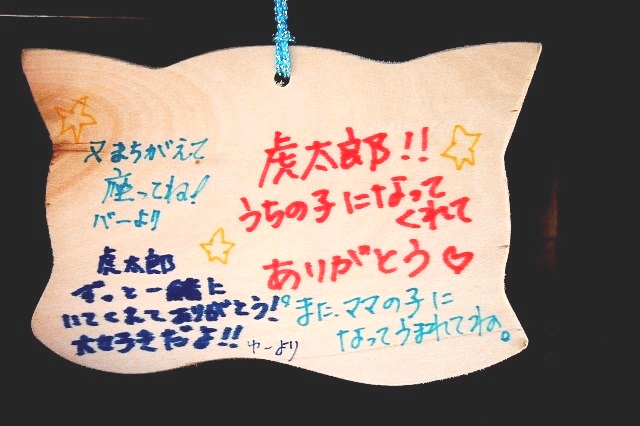 虎太郎!!
うちの子になって
くれて
ありがとう♡
また、ママの子に
なってうまれてね。
又まちがえて
座ってね!
バーより
虎太郎
ずっと一緒に
いてくれてありがとう!
大好きだよ!!
ゆーより